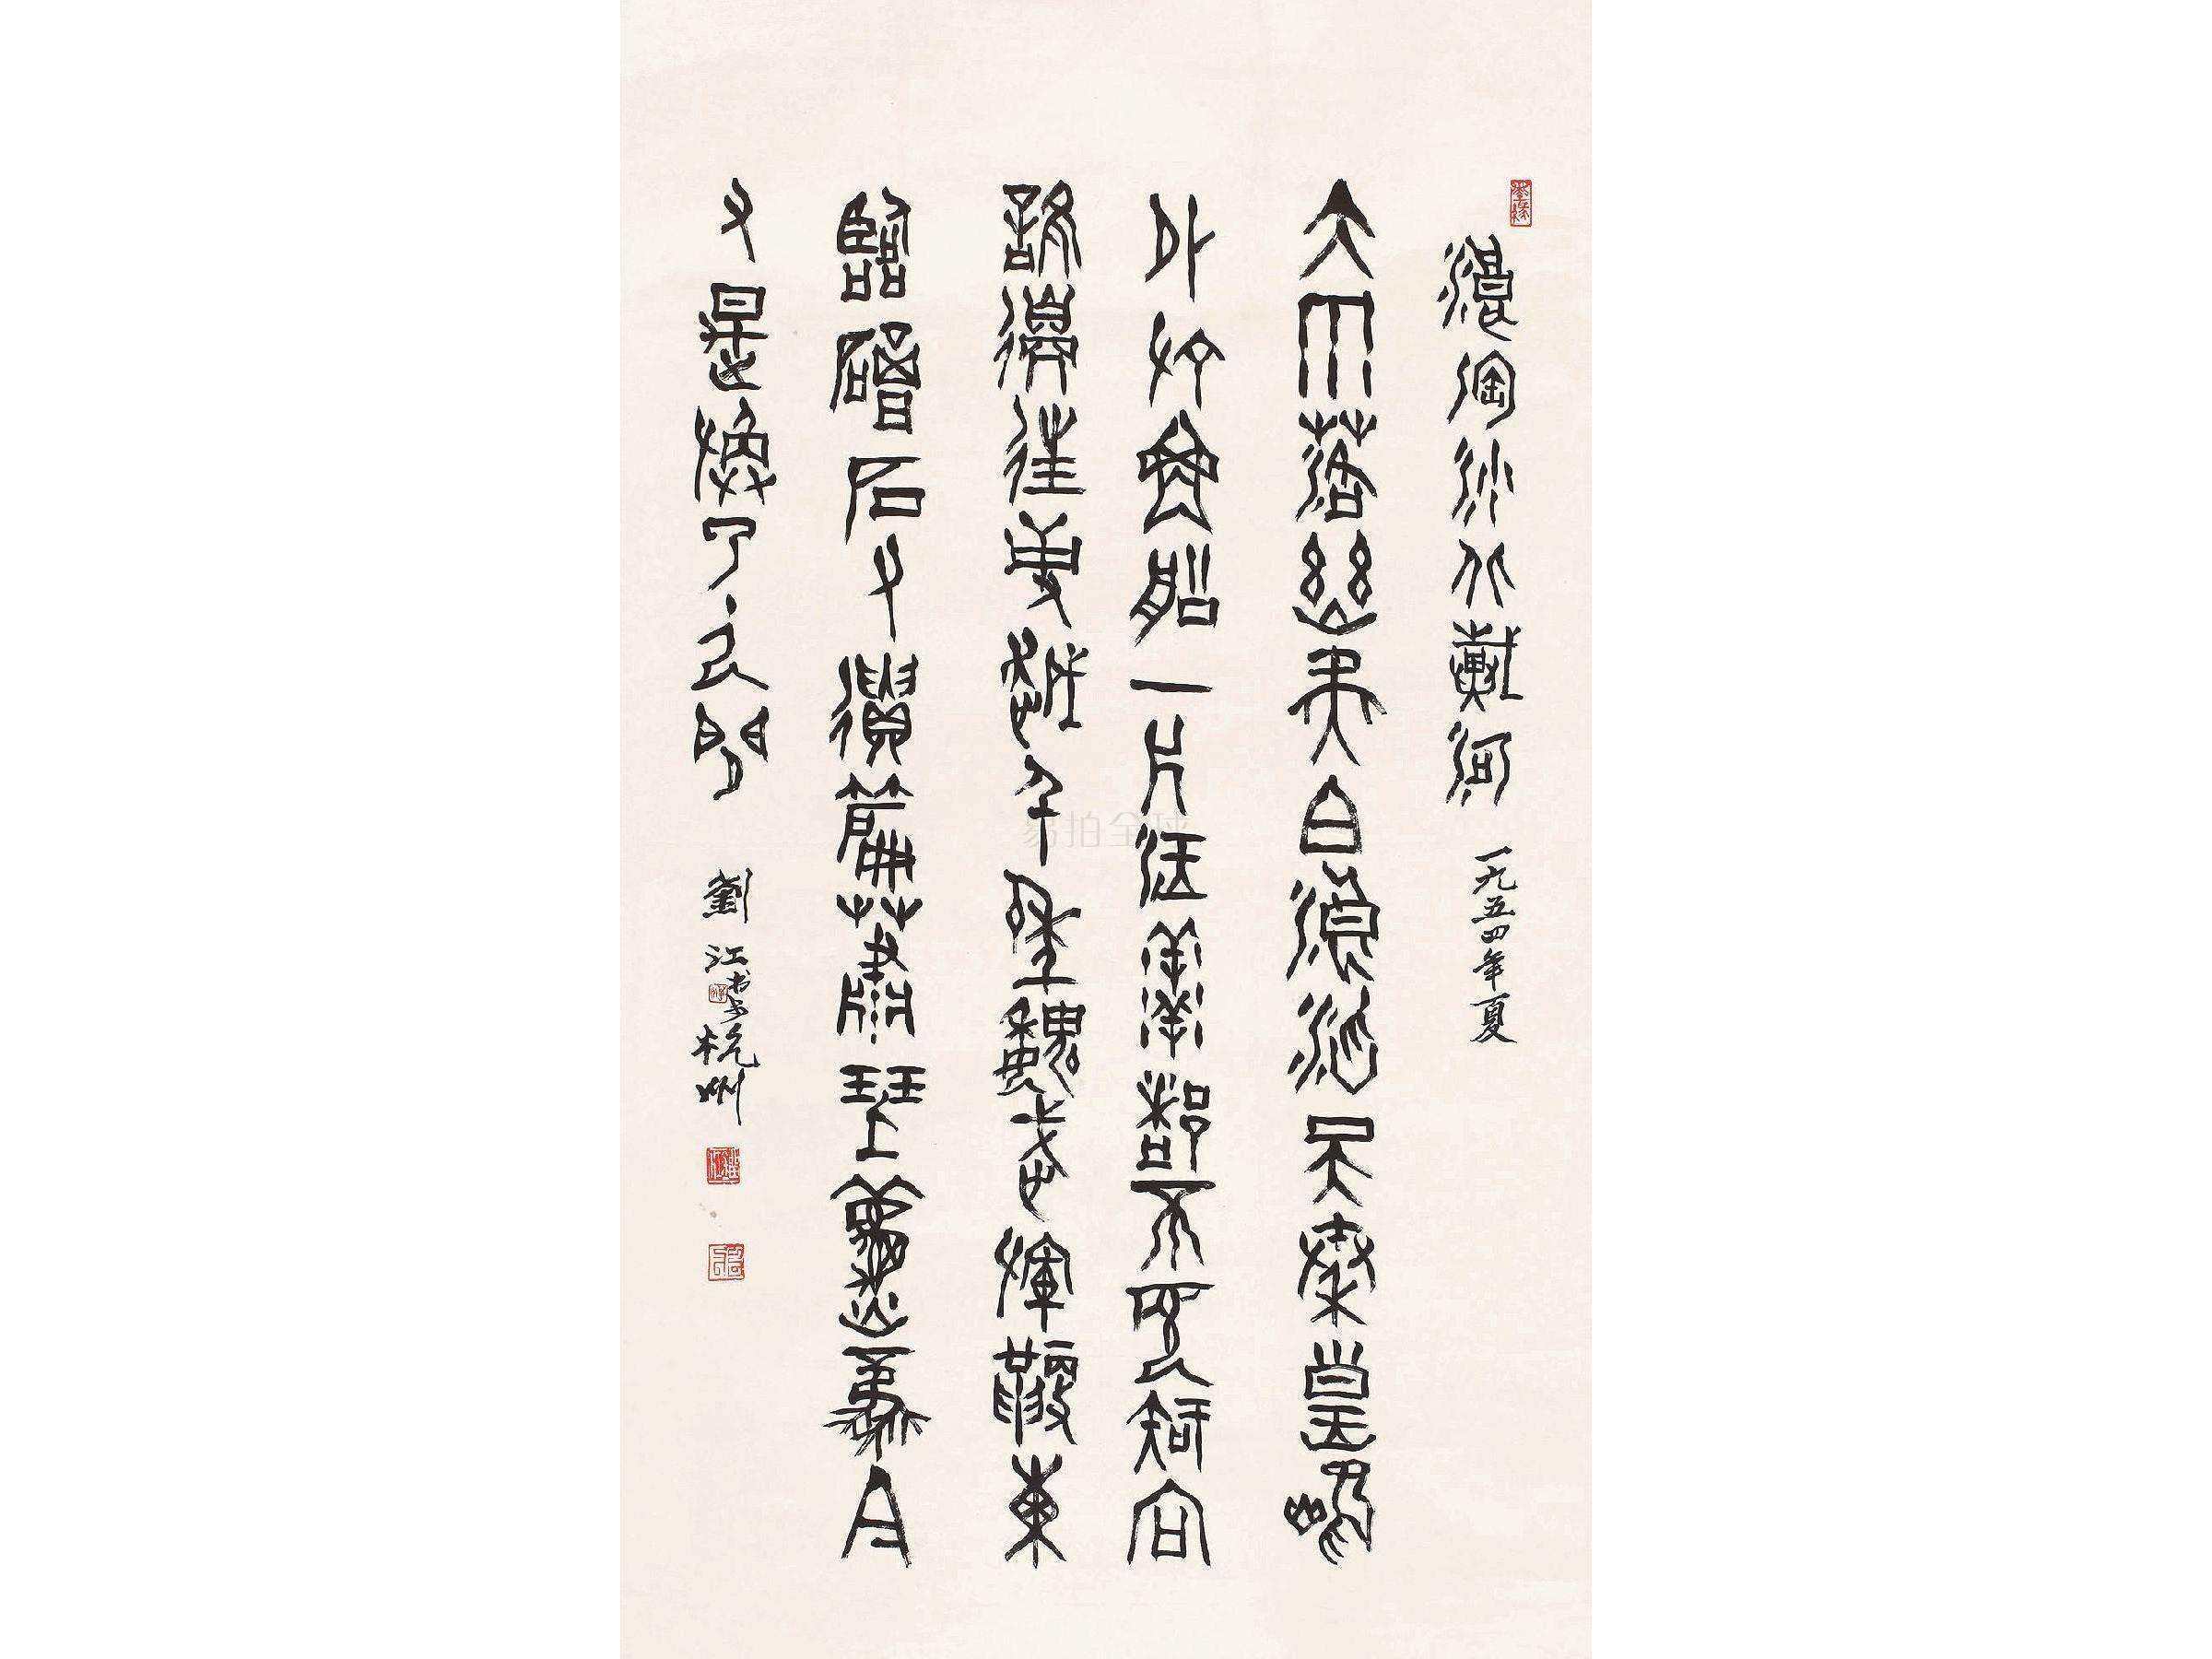 浪淘沙北戴河 一九五四年夏
大雨落幽燕白浪滔天秦皇島
外打魚船一片汪洋都不見知向
誰邊往事越千年魏武揮鞭東
臨碣石有遺篇蕭瑟秋風今
又是換了人間 劉江書於杭州
易拍全球